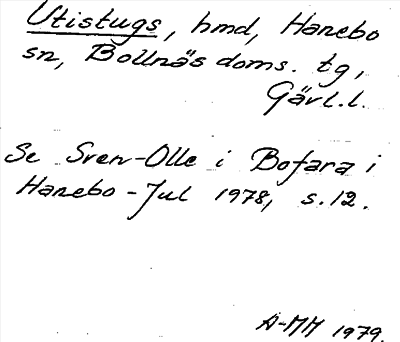 Utistugs, hmd, Hanebo
sn, Bollnäs doms. tg,
Gävl.l.
Se Sven-Olle i Bofara i
Hanebo - Jul 1978, s.12.
A-MH 1979.